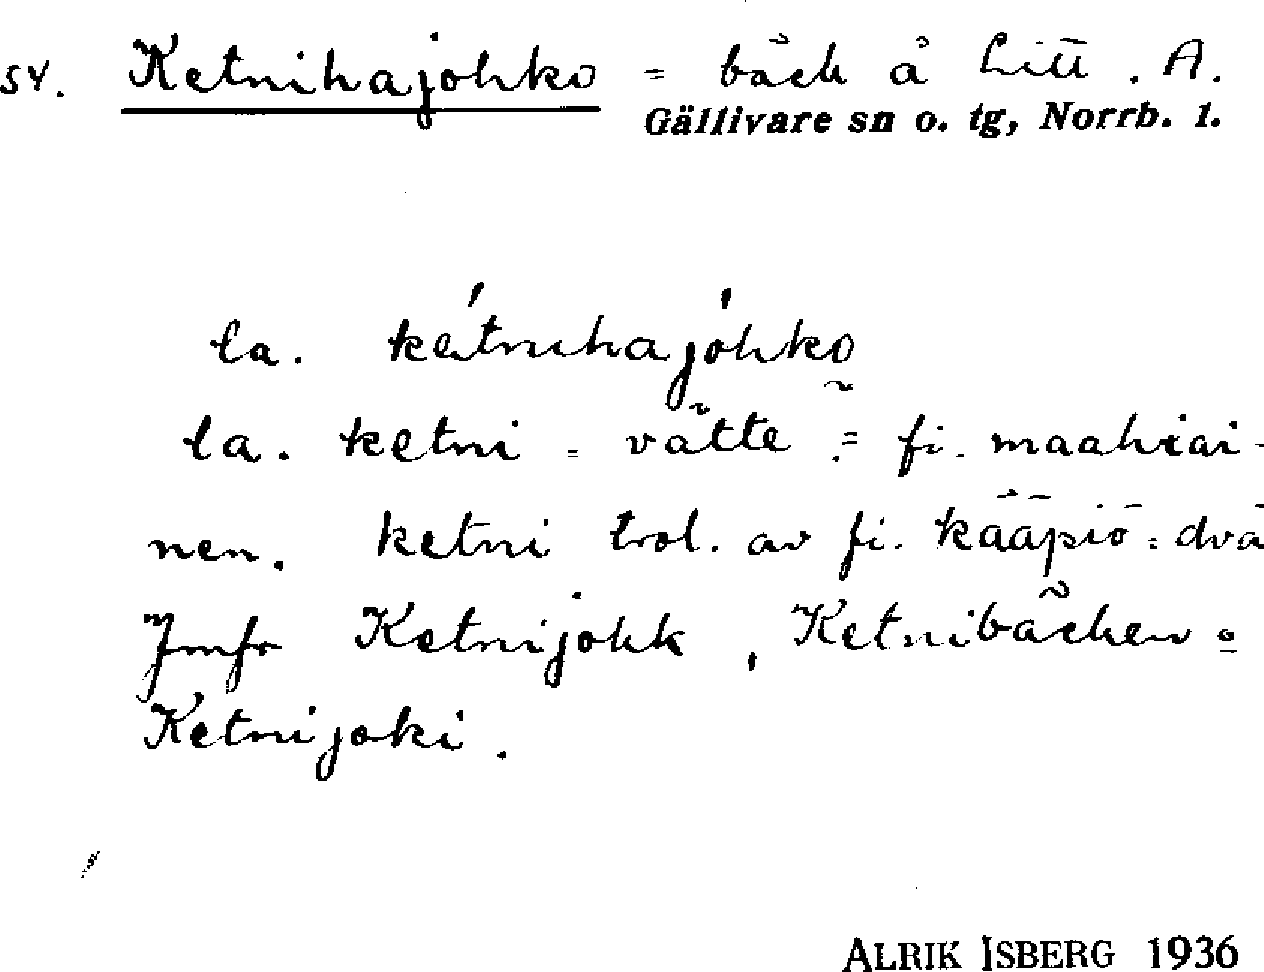 54. Ketnihajohko = bäck å Litt. A.
Gällivare sn o. tg, Norrb. l.
la. ketnihajohko
la. ketni = vätte = fi. maahiai-
nen. ketni trol. av fi. kääpiö = dvä
Jmfr Ketnijokk, Ketnibäcken o
Ketnijoki.
ALRIK ISBERG 1936